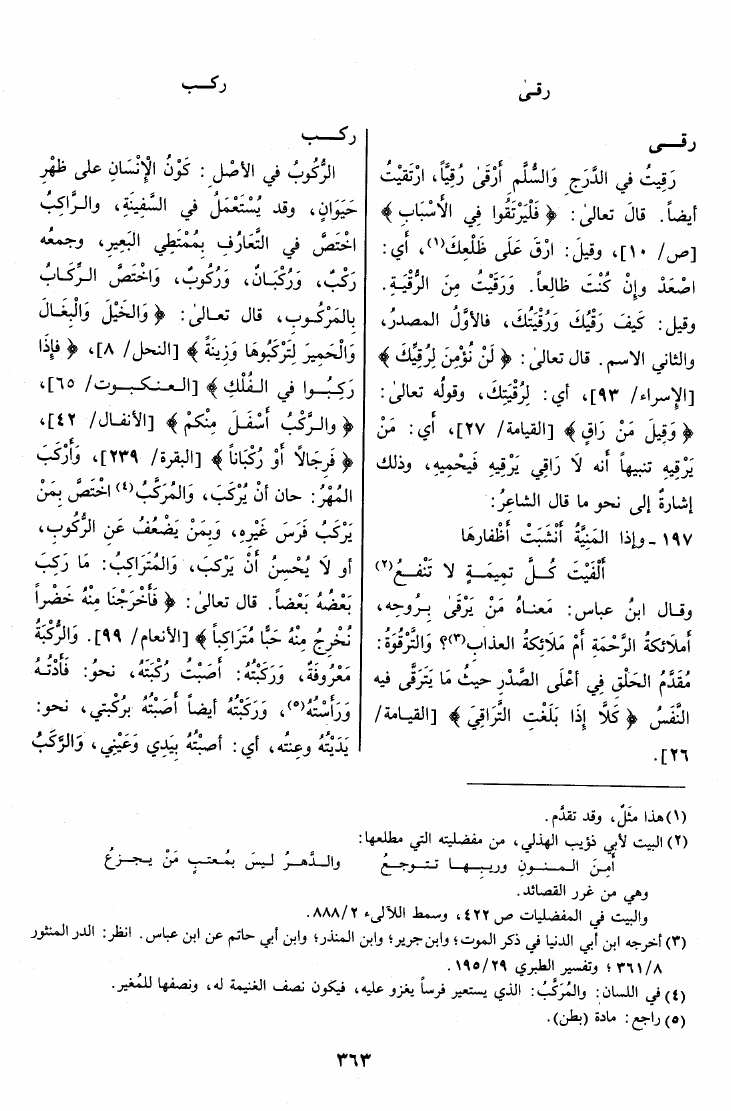 رقـى
ركـــب
رقــــى
رَقِيتُ في الدَّرَجِ وَالسُّلَّمِ أَرْقَى رُقِيَّاً، ارْتَقَيْتُ
أيضاً. قالَ تعالىٰ: ﴿ فَلْيَرْتَقُوا فِي الأَسْبَابِ ﴾
[ص/ ١٠]، وقيلَ: ارْقَ عَلَى ظَلْعِكَ(١)، أي:
اصْعَدْ وإنْ كُنْتَ ظالِعاً. وَرَقَيْتُ مِنَ الرُّقْيَةِ.
وقيل: كَيفَ رَقْيُكَ وَرُقْيَتُكَ، فالأوَّلُ المصدرُ،
والثاني الاسم. قال تعالىٰ: ﴿ لَنْ نُؤْمِنَ لِرُقِيِّكَ ﴾
[الإسراء/ ٩٣]، أي: لِرُقْيَتِكَ، وقولُه تعالىٰ:
﴿ وَقِيلَ مَنْ رَاقٍ ﴾ [القيامة/ ٢٧]، أي: مَنْ
يَرْقِيهِ تنبيهاً أنه لَا رَاقِي يَرْقِيهِ فيَحْمِيهِ، وذلك
إشارةٌ إلى نحو ما قال الشاعرُ:
١٩٧ - وإذا المَنِيَّةُ أَنْشَبَتْ أظْفارهَا
أَلْفَيْتَ كُـلَّ تمِيمَـةٍ لَا تَنْفَـعُ(٢)
وقـال ابنُ عباس: مَعنـاهُ مَنْ يَرْقَى بِـرُوحِهِ،
أملائِكةُ الرَّحْمَةِ أمْ مَلَائِكَةُ العذابِ(٣)؟ وَالتَّرْقُوَةُ:
مُقَدَّمُ الحَلْقِ في أعْلَى الصَّدْرِ حيثُ مَا يَتَرَقَّى فيه
النَّفَسُ ﴿ كَلَّا إِذَا بَلَغَتِ التَّرَاقِيَ ﴾ [القيـامة/
٢٦].
ركــــب
الرُّكُوبُ في الأصْلِ: كَوْنُ الإِنْسَانِ على ظهْرِ
حَيَوَانٍ، وقد يُسْتَعْمَلُ في السَّفِينَةِ، والرَّاكِبُ
اخْتَصَّ في التَّعَارُفِ بِمُمْتَطِي البَعِيرِ، وجمعُه
رَكْبٌ، وَرُكْبَانٌ، وَرُكُوبٌ، وَاخْتَصَّ الرِّكَابُ
بالمَرْكُـوبِ، قال تعـالىٰ: ﴿ وَالخَيْلَ وَالْبِغَالَ
وَالْحَمِيرَ لِتَرْكَبُوهَا وَزِينَةً ﴾ [النحل/ ٨]، ﴿ فَإِذَا
رَكِبُـوا في الفُلْكِ ﴾ [العنكبـوت/ ٦٥]،
﴿ والـرَّكْبُ أَسْفَـلَ مِنْكمْ ﴾ [الأنفـال/ ٤٢]،
﴿ فَرِجَالاً أَوْ رُكْبَاناً ﴾ [البقرة/ ٢٣٩]، وَأَرْكَبَ
المُهْرُ: حان أنْ يُرْكَبَ، وَالمُرَكَّبُ(٤) اخْتَصَّ بِمَنْ
يَرْكَبُ فَرَسَ غَيْرِهِ، وَبِمَنْ يَضْعُفُ عَنِ الرُّكُوبِ،
أو لَا يُحْسِنُ أَنْ يَرْكَبَ، وَالمُتَرَاكِبُ: مَا رَكِبَ
بَعْضُهُ بَعْضاً. قال تعالىٰ: ﴿ فَأَخْرَجْنَا مِنْهُ خَضْراً
نُخْرِجُ مِنْهُ حَبًّا مُتَرَاكِباً ﴾ [الأنعام/ ٩٩]. وَالرُّكْبَةُ
مَعْرُوفَةٌ، وَرَكَبْتُهُ: أصَبْتُ رُكْبَتَهُ، نحوُ: فَأَدْتُـهُ
وَرَأَسْتُهُ(٥)، وَرَكَبْتُهُ أيضاً أَصَبْتُهُ بِرُكْبَتي، نحو:
يَدَيْتُهُ وعِنتُه، أي: أصبْتُهُ بِيَدِي وَعَيْنِي، وَالرَّكَبُ
(١) هذا مثَلٌ، وقد تقدَّم.
(٢) البيت لأبي ذؤيب الهذلي، من مفضليته التي مطلعها:
أَمِنَ المنـونِ وريبهـا تتـوجـعُ والدَّهـرُ ليسَ بمُعتبٍ مَنْ يجـزعُ
وهي من غرر القصائد.
والبيت في المفضليات ص ٤٢٢، وسمط اللآلىء ٢/ ٨٨٨.
(٣) أخرجه ابن أبي الدنيا في ذكر الموت؛ وابن جرير؛ وابن المنذر؛ وابن أبي حاتم عن ابن عباس. انظر: الدر المنثور
٨/ ٣٦١؛ وتفسير الطبري ٢٩/ ١٩٥.
(٤) في اللسان: والمُرَكَّبُ: الذي يستعير فرساً يغزو عليه، فيكون نصف الغنيمة له، ونصفها للمُغير.
(٥) راجع: مادة (بطن).
٣٦٣